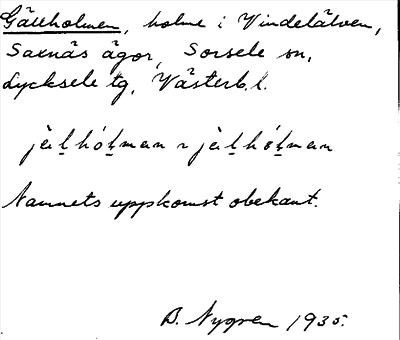 Gällholmen, holme i Vindelälven,
Saxnäs ägor, Sorsele sn,
Lycksele tg, Västerb. l.
jä̀ḻhóḻman ~ jä̀ḻhó́ḻman
Namnets uppkomst obekant.
B. Nygren 1935.